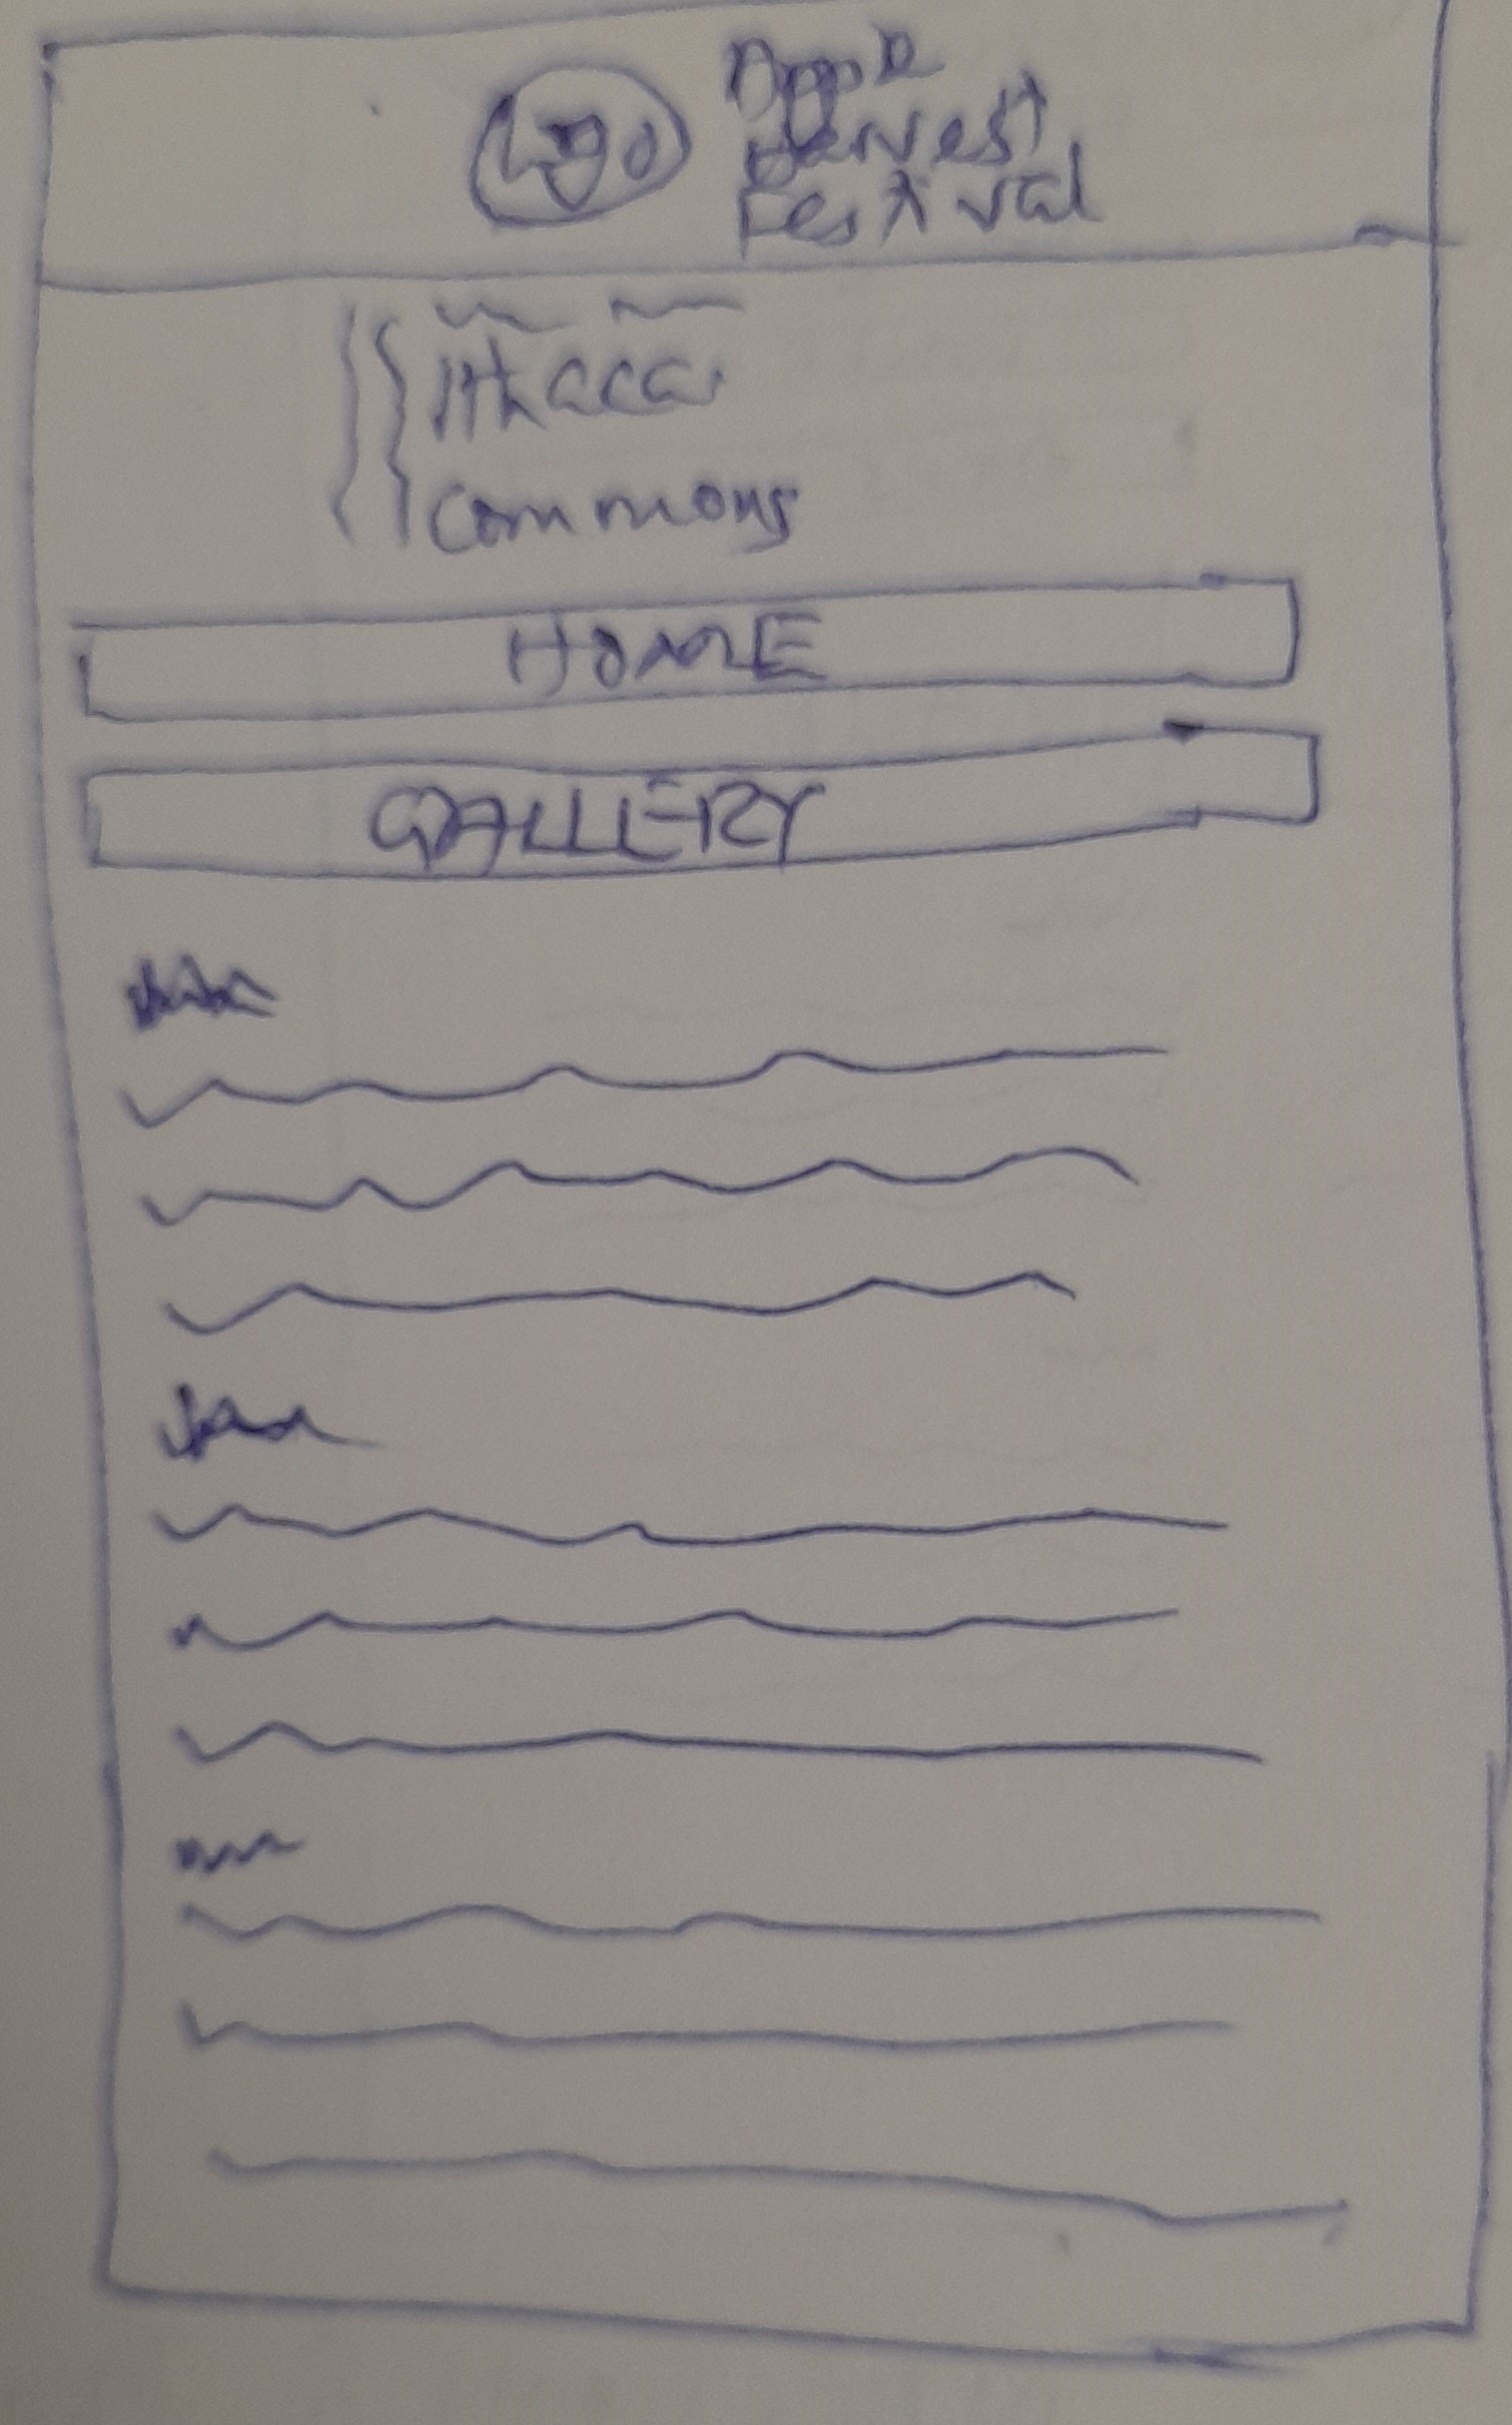 Logo
Apple
Harvest
Festival
Ithaca
Commons
HOME
GALLERY